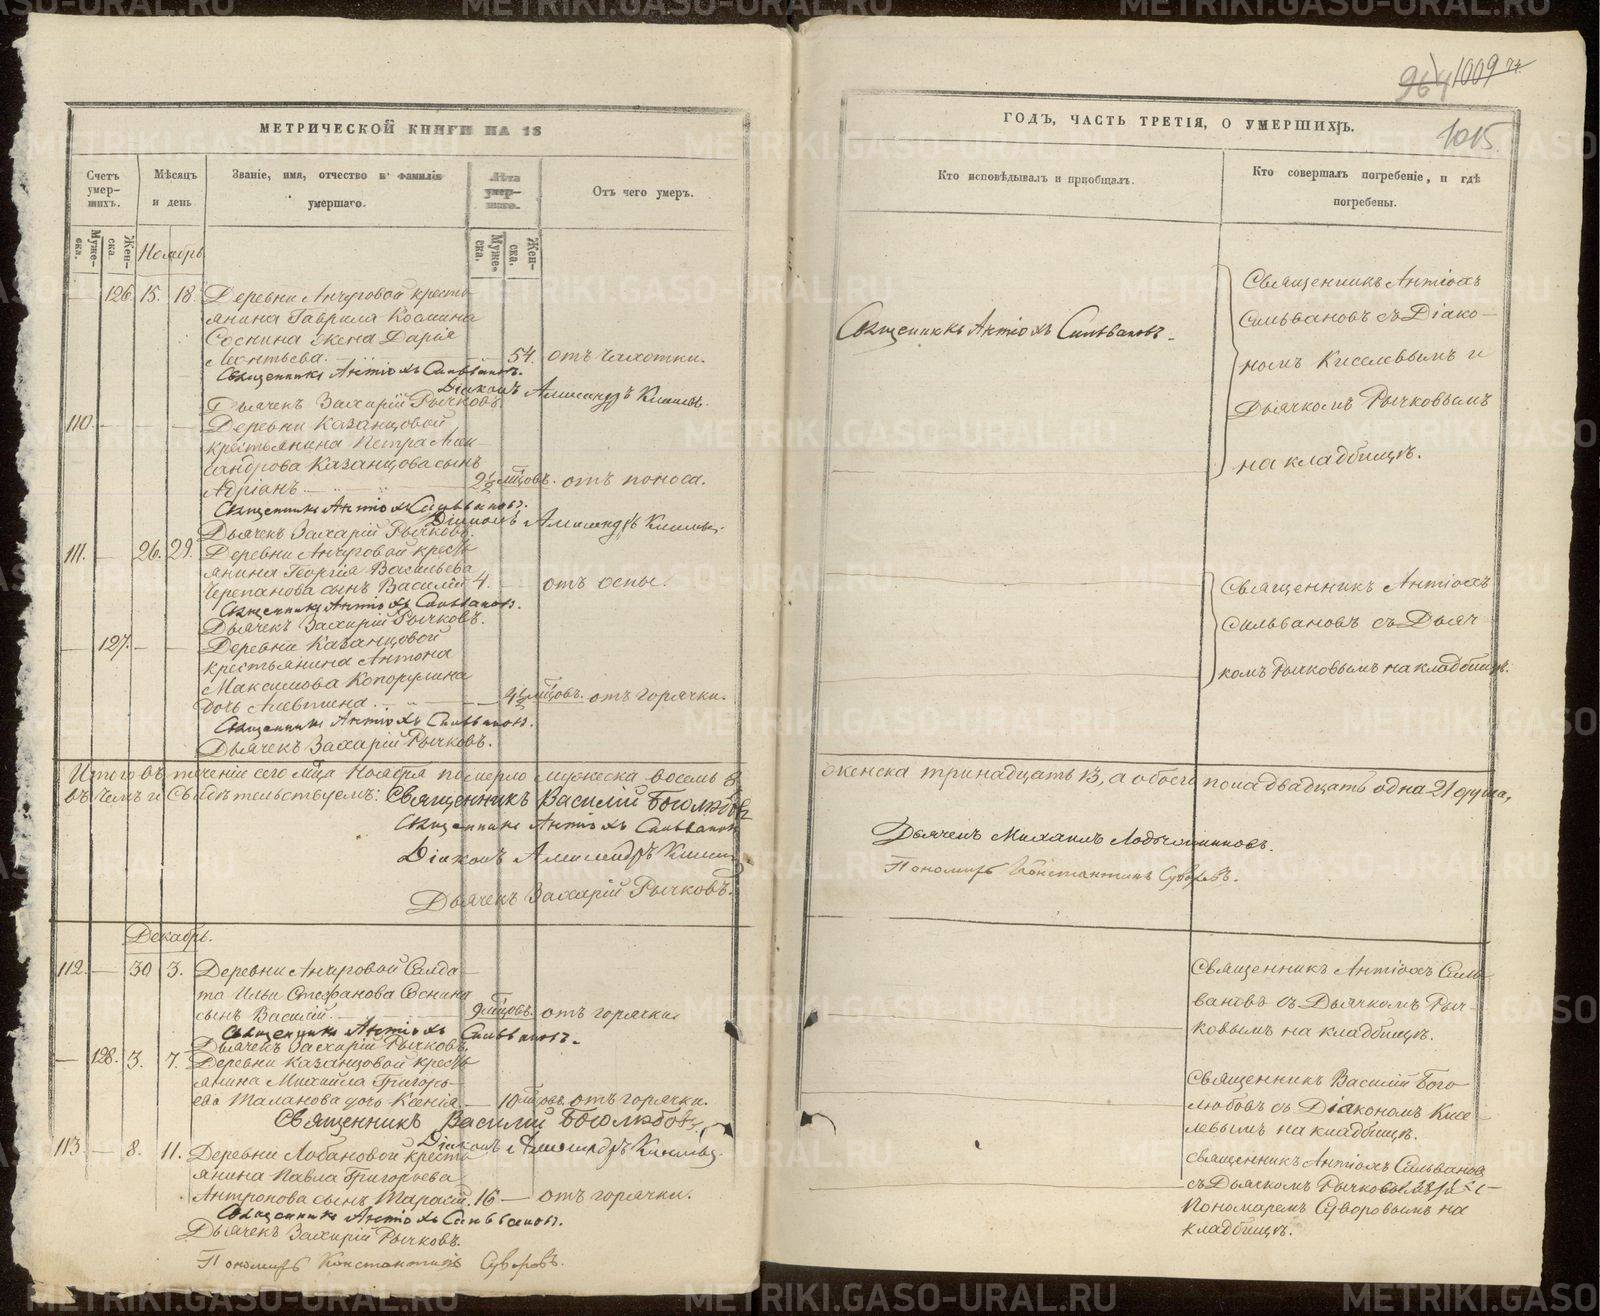 МЕТРИЧЕСКОЙ КНИГИ НА 18
Счетъ умер-шихъ.
Мѣсяцъ и день
Званіе, имя, отчество и фамилія умершаго.
Лѣта умер-шаго.
Отъ чего умеръ.
Муже-ска.
Жен-ска.
Муже-ска.
Жен-ска.
Ноябрь
126. 15. 18. Деревни Анчуговой кресть-
янина Гаврила Космина
Соснина жена Дарія
Леонтьева. 54. отъ чахотки.
Священникъ Антіохъ Сильвановъ.
Діаконъ Александръ Киселевъ.
Дьячекъ Захарій Рычковъ.
110. Деревни Казанцовой
крестьянина Петра Алек-
сандрова Казанцова сынъ
Адріанъ. 2½ мѣцовъ. отъ поноса.
Священникъ Антіохъ Сильвановъ.
Діаконъ Александръ Киселевъ.
Дьячекъ Захарій Рычковъ.
111. 26. 29. Деревни Анчуговой кресть-
янина Георгія Васильева
Черепанова сынъ Василій 4. отъ оспы.
Священникъ Антіохъ Сильвановъ.
Дьячекъ Захарій Рычковъ.
127. Деревни Казанцовой
крестьянина Антона
Максимова
дочь 4½ мѣцовъ. отъ горячки.
Священникъ Антіохъ Сильвановъ.
Дьячекъ Захарій Рычковъ.
Итого въ теченіе сего мѣца Ноября померло мужеска восемь 8,
въ чемъ и свидѣтельствуемъ: Священникъ Василій Боголюбовъ
Священникъ Антіохъ Сильвановъ
Діаконъ Александръ Киселевъ
Дьячекъ Захарій Рычковъ.
Декабрь.
112. 30 3. Деревни Анчуговой Салда-
та Ильи Стефанова Соснина
сынъ Василій. 9 мѣцовъ. отъ горячки
Священникъ Антіохъ Сильвановъ.
Дьячекъ Захарій Рычковъ.
128. 3. 7. Деревни Казанцовой кресть-
янина Михаила Григорь-
ева Таланова дочь Ксенія. 10 мѣцовъ. отъ горячки.
Священникъ Василій Боголюбовъ.
Діаконъ Александръ Киселевъ.
113. 8. 11. Деревни Лобановой кресть-
янина Павла Григорьева
Антропова сынъ Тарасій. 16 отъ горячки.
Священникъ Антіохъ Сильвановъ.
Дьячекъ Захарій Рычковъ.
Пономарь Константинъ Суворовъ.
964 1009
1015
ГОДЪ, ЧАСТЬ ТРЕТІЯ, О УМЕРШИХЪ.
Кто исповѣдывалъ и пріобщалъ.
Кто совершалъ погребеніе, и гдѣ погребены.
Священникъ Антіохъ Сильвановъ.
Священникъ Антіохъ
Сильвановъ съ Діако-
номъ Киселевымъ и
Дьячкомъ Рычковымъ
на кладбищѣ.
Священникъ Антіохъ
Сильвановъ съ Дьяч
комъ Рычковымъ на кладбищѣ.
женска тринадцать 13, а обоего пола двадцать одна 21 душа,
Дьячекъ Михаилъ
Пономарь Константинъ Суворовъ.
Священникъ Антіохъ Силь-
вановъ съ Дьячкомъ Рыч-
ковымъ на кладбищѣ.
Священникъ Василій Бого
любовъ съ Діакономъ Кисе-
левымъ на кладбищѣ.
Священникъ Антіохъ Сильвановъ
съ Дьячкомъ Рычковымъ и
Пономаремъ Суворовымъ на
кладбищѣ.
METRIKI.GASO-URAL.RU